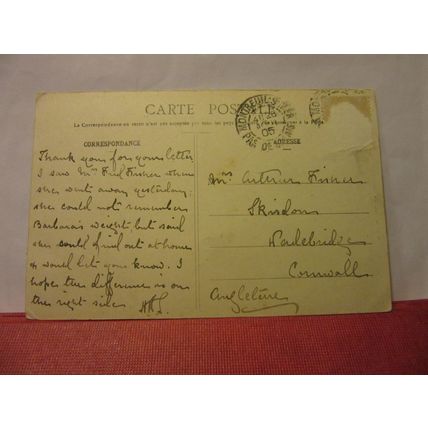 CARTE POSTALE
La Correspondance au recto n'est pas acceptée par tous les pays
CORRESPONDANCE
ADRESSE
MONTREUIL-S-MER
05
Thank you for your letter
I saw Mrs Fred Fisher when
she went away yesterday.
she could not remember
Barbara's weight but said
she could find out at home
& would let you know. I
hope the difference is on
the right side.
Mrs Arthur Fisher
Skisdon
Wadebridge
Cornwall
Angleterre